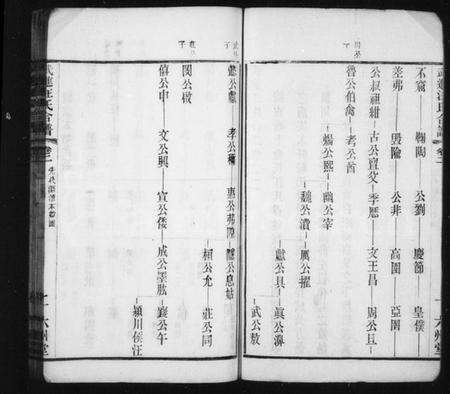 不窋 鞠陶 公劉 慶節 皇僕
差弗 毀隃 公非 高圉 亞圉
公叔祖紺 古公亶父 季歷 文王昌 周公旦
魯公伯禽 考公酋
煬公熙 幽公宰
魏公㵒 厲公擢
獻公具 真公濞
武公敖
懿公戲 孝公稱 惠公弗湟 隱公息姑
桓公允 莊公同
閔公啟
僖公申 文公興 宣公倭 成公黑肱 襄公午
潁川侯汪
汪氏合譜 卷一 六州堂